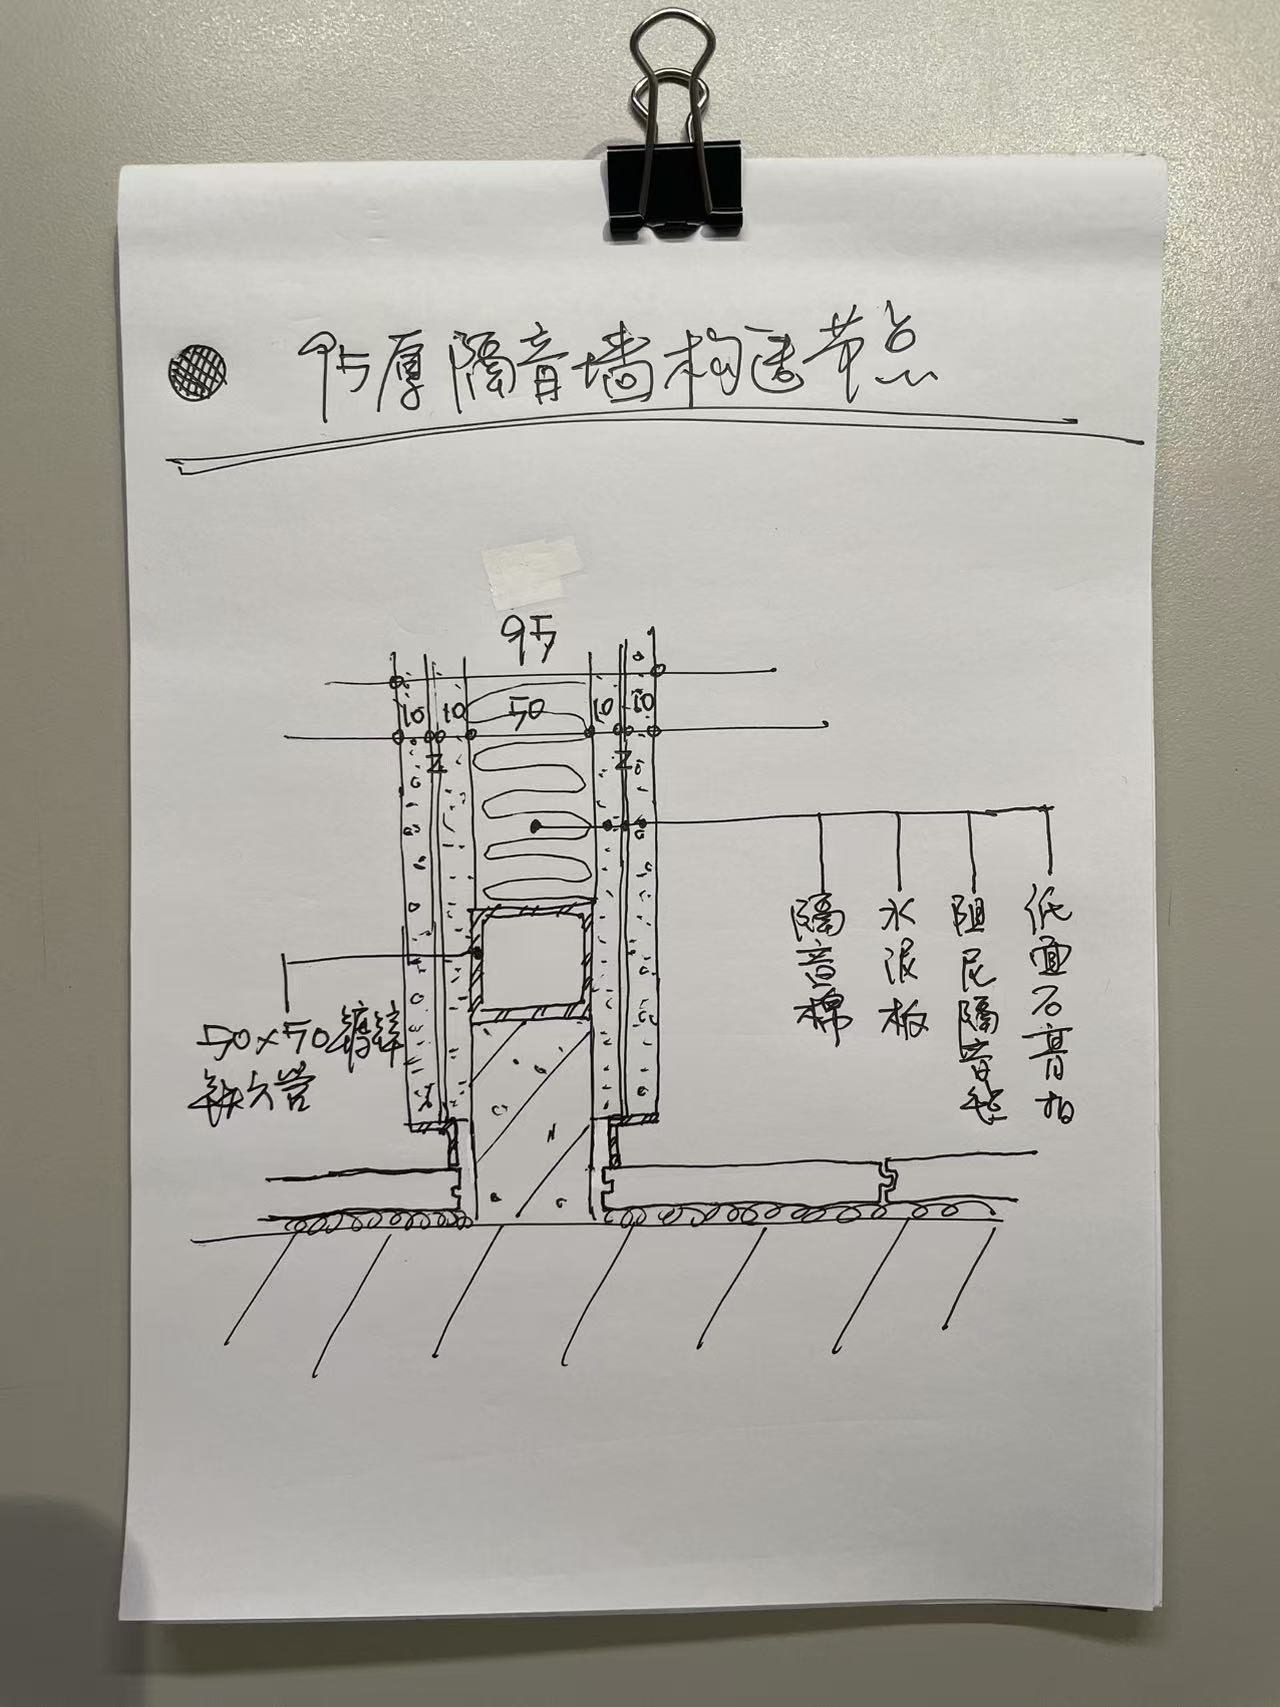 95厚隔音墙构造节点
95
10 10 50 10 10
2 2
隔音棉
水泥板
阻尼隔音毡
纸面石膏板
50×50镀锌
铁方管